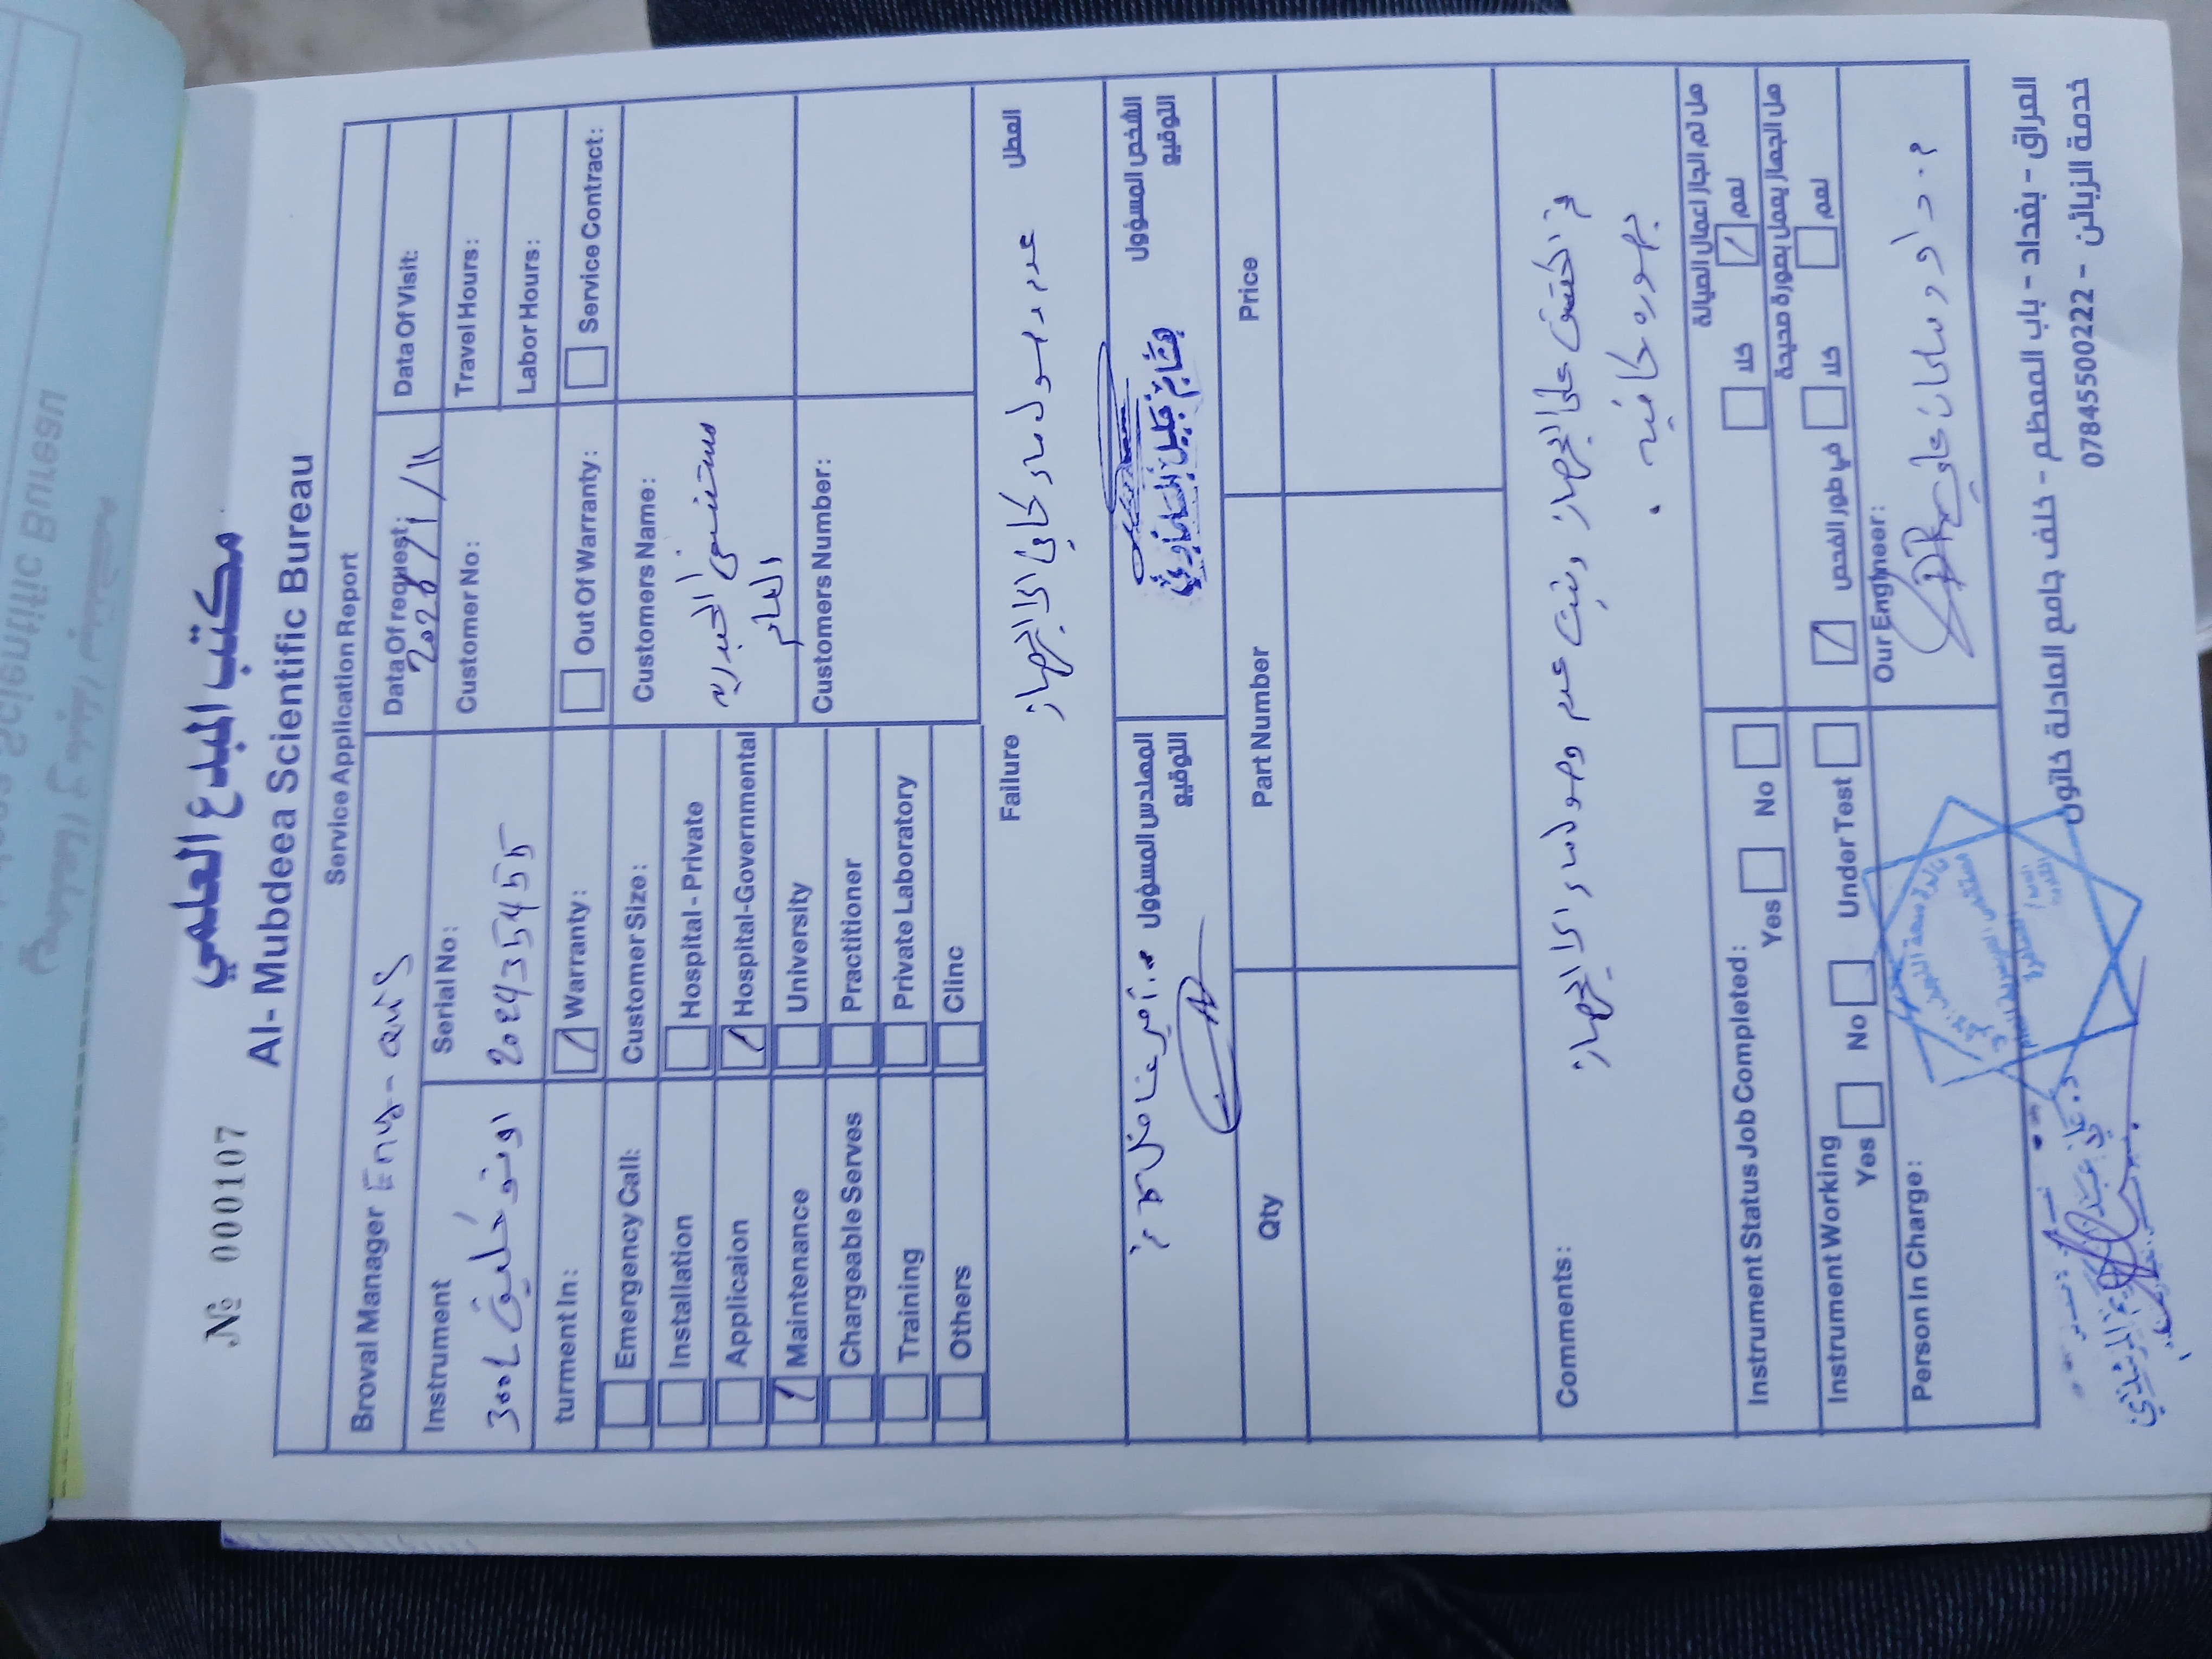 № 000107
مكتب المبدع العلمي
Al- Mubdeea Scientific Bureau
Service Application Report
Broval Manager Eng-
Data Of request:
2026/1/11
Data Of Visit:
Instrument
اوتو كليف 300L
Serial No:
202435455
Customer No:
Travel Hours:
Labor Hours:
turment In:
Warranty:
Out Of Warranty:
Service Contract:
Emergency Call:
Installation
Applicaion
Maintenance
Chargeable Serves
Training
Others
Customer Size:
Hospital - Private
Hospital-Governmental
University
Practitioner
Private Laboratory
Clinc
Customers Name:
مستشفى الحيدرية
العام
Customers Number:
Failure
العطل
عدم وصول ماء كافي الى الجهاز
المهندس المسؤول
التوقيع
م. أمير فاضل كاظم
الشخص المسؤول
التوقيع
Qty
Part Number
Price
Comments:
تم الكشف على الجهاز وتبين عدم وصول ماء الى الجهاز
بصورة كافية .
Instrument Status Job Completed:
Yes
No
هل تم انجاز اعمال الصيانة
كلا
نعم
Instrument Working
Yes
No
Under Test
هل الجهاز يعمل بصورة صحيحة
في طور الفحص
كلا
نعم
Person In Charge:
Our Engineer:
العراق - بغداد - باب المعظم - خلف جامع العادلة خاتون
خدمة الزبائن - 07845500222